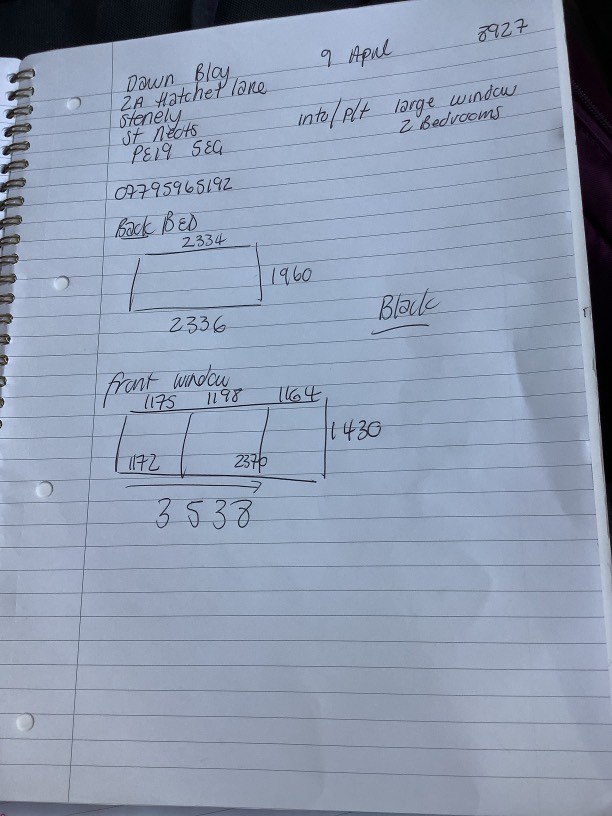 9 April
8927
Dawn Bloy
2A Hatchet lane
Stonely
St Neots
PE19 5EG
into/p/t large window
2 Bedrooms
07795965192
Back BED
2334
1960
2336
Black
front window
1175 1198 1164
1430
1172 2370
3538